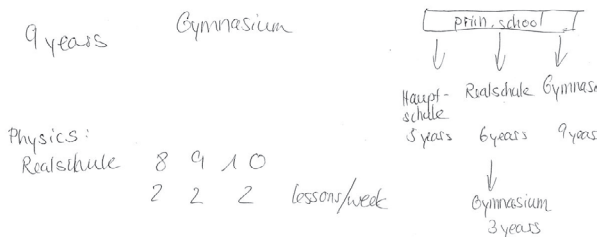 9 years
Gymnasium
prim. school
Haupt-
schule
5 years
Realschule
6 years
Gymnas
9 yea
Gymnasium
3 years
Physics:
Realschule 8 9 10
2 2 2 lessons/week